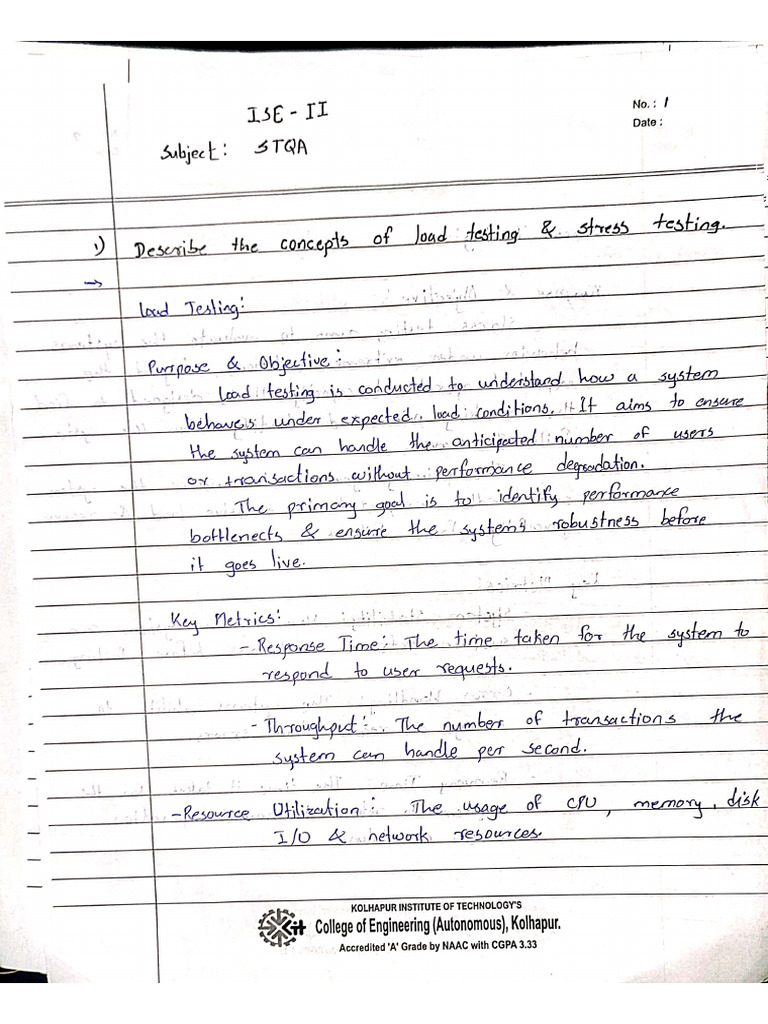 ISE - II
No. : 1
Date :
Subject : STQA
1) Describe the concepts of load testing & stress testing.
→
Load Testing:
Purrpose & Objective :
Load testing is conducted to understand how a system
behaves under expected load conditions. It aims to ensure
the system can handle the anticipated number of users
or transactions without performance degradation.
The primary goal is to identify performance
bottlenects & ensure the system's robustness before
it goes live.
Key Metrics:
- Response Time: The time taken for the system to
respond to user requests.
- Throughput: The number of transactions the
system can handle per second.
- Resource Utilization : The usage of CPU, memory, disk
I/O & network resources.
KOLHAPUR INSTITUTE OF TECHNOLOGY'S
Kit College of Engineering (Autonomous), Kolhapur.
Accredited 'A' Grade by NAAC with CGPA 3.33